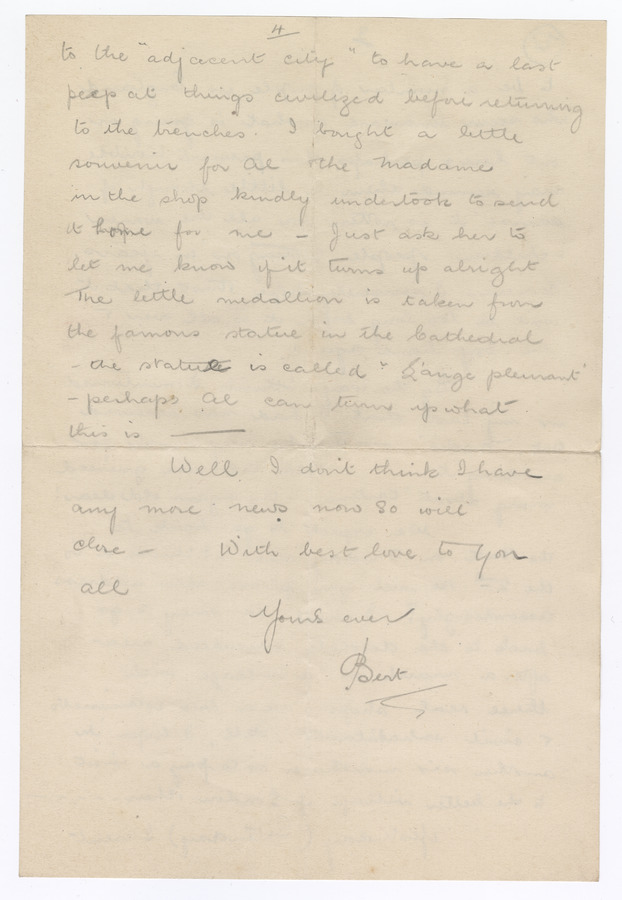 4
to the "adjacent city" to have a last
peep at things civilized before returning
to the trenches. I bought a little
souvenir for Al & the Madame
in the shop kindly undertook to send
it home for me – Just ask her to
let me know if it turns up alright
The little medallion is taken from
the famous statue in the Cathedral
– the statue is called "L'ange pleurant"
– perhaps Al can turn up what
this is ——
Well I don't think I have
any more news now so will
close – With best love to you
all
Yours ever
Bert